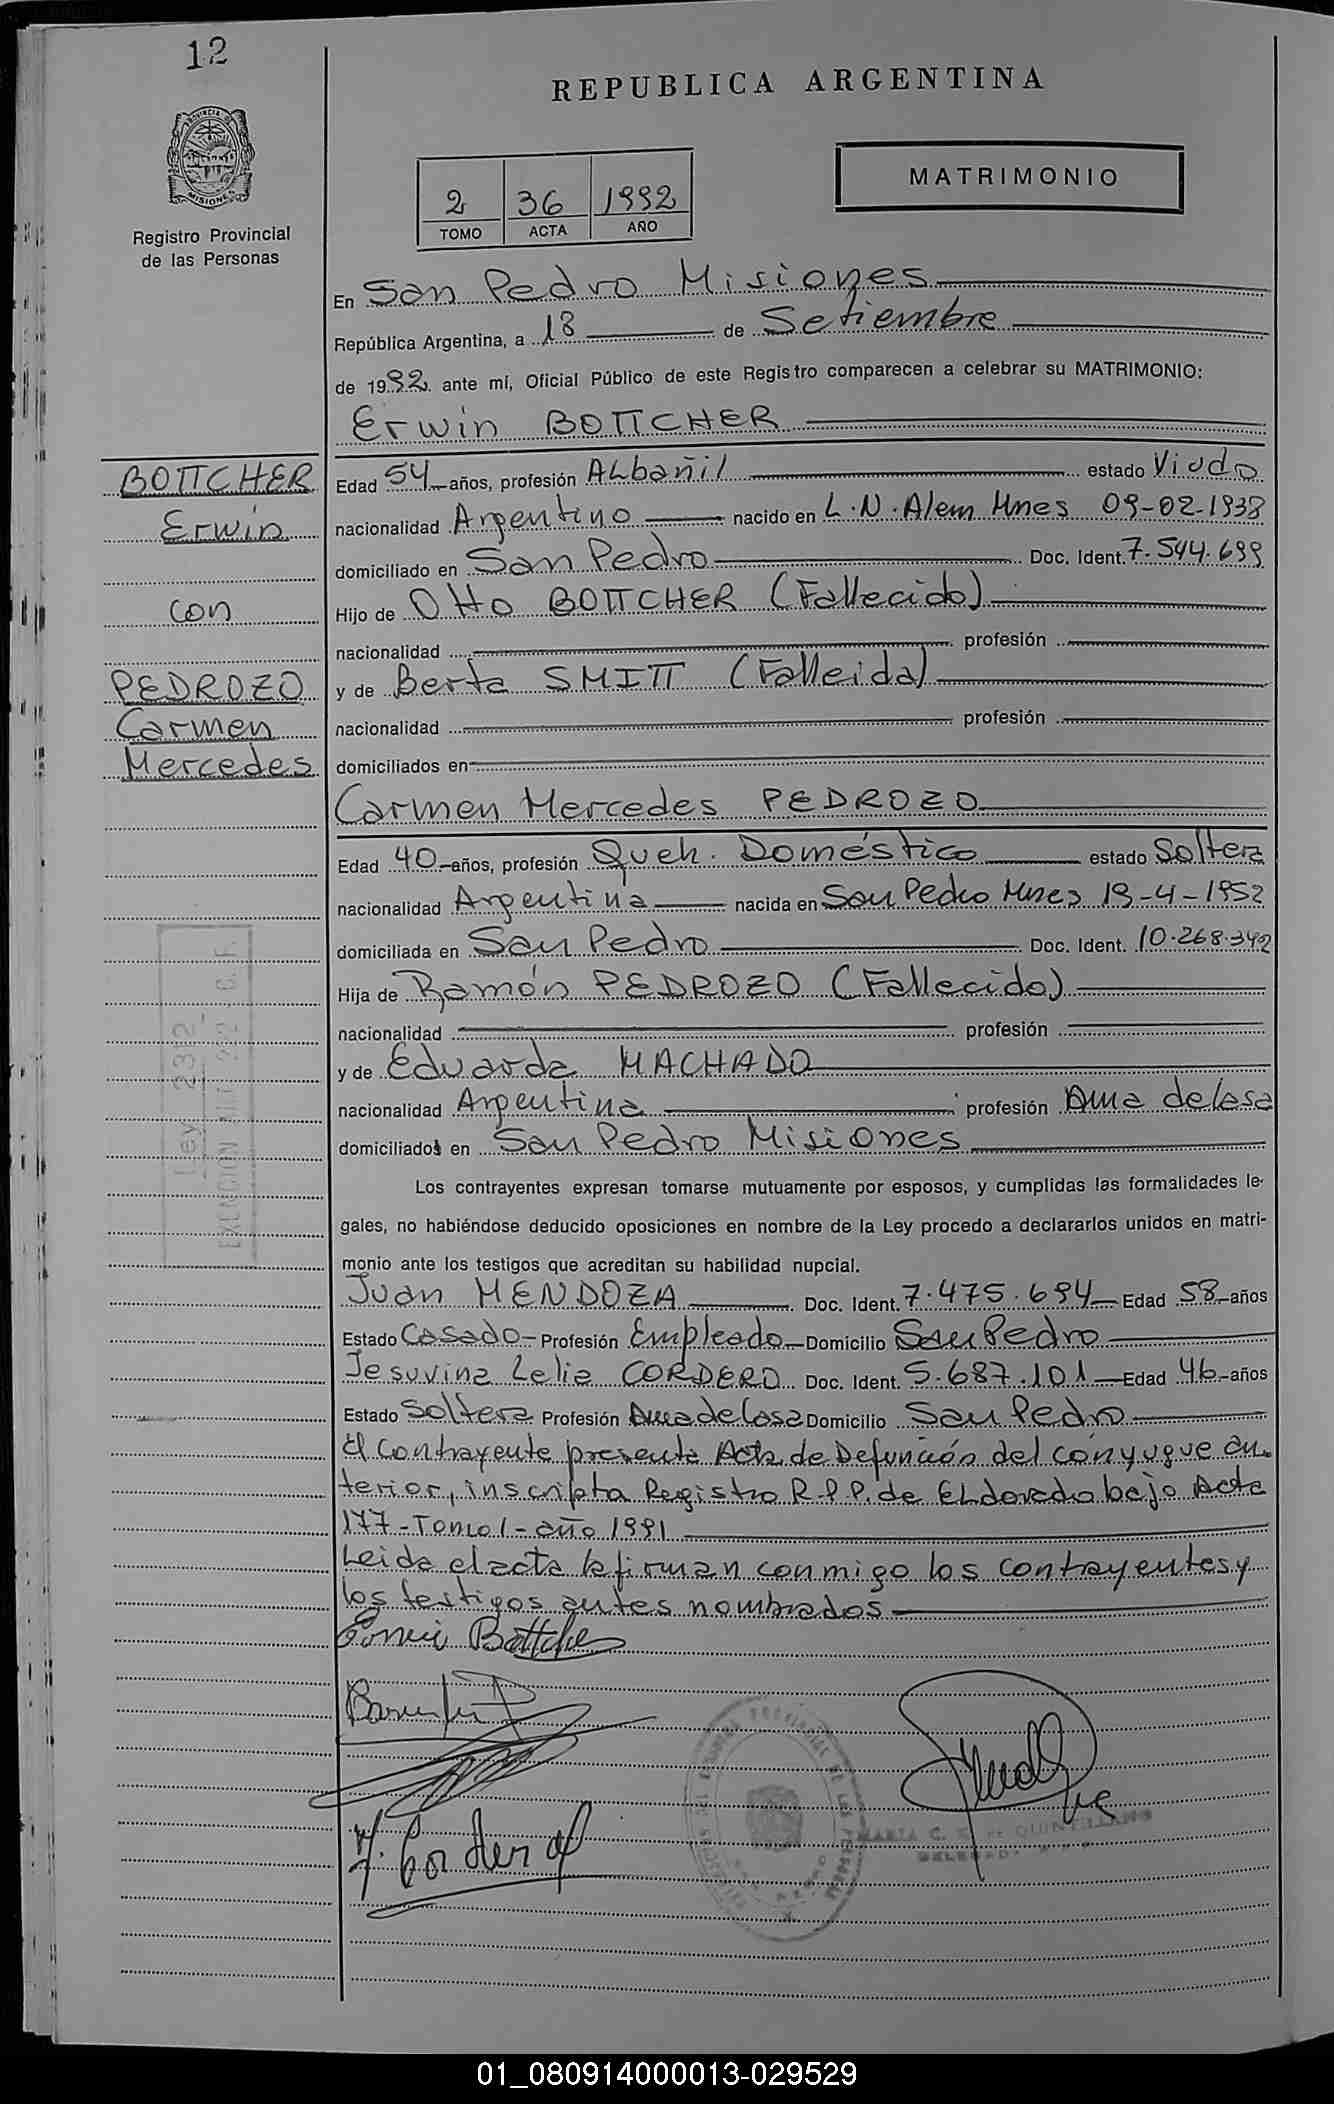 12
REPUBLICA ARGENTINA
MATRIMONIO
PROVINCIA DE
MISIONES
Registro Provincial
de las Personas
2 36 1992
TOMO ACTA AÑO
En San Pedro Misiones
República Argentina, a 18 de Setiembre
de 1992 ante mí, Oficial Público de este Registro comparecen a celebrar su MATRIMONIO:
Erwin BOTTCHER
BOTTCHER
Erwin
con
PEDROZO
Carmen
Mercedes
Edad 54 años, profesión ALbañil estado Viudo
nacionalidad Argentino nacido en L.N.Alem Mnes 09-02-1938
domiciliado en San Pedro Doc. Ident. 7.544.699
Hijo de Otto BOTTCHER (Fallecido)
nacionalidad profesión
y de Berta SMITT (Falleida)
nacionalidad profesión
domiciliados en
Carmen Mercedes PEDROZO
Edad 40 años, profesión Queh. Doméstico estado Soltera
nacionalidad Argentina nacida en San Pedro Mnes 19-4-1952
domiciliada en San Pedro Doc. Ident. 10.268.342
Hija de Ramón PEDROZO (Fallecido)
nacionalidad profesión
y de Eduarda MACHADO
nacionalidad Argentina profesión Ama de Casa
domiciliados en San Pedro Misiones
Ley 2312
Los contrayentes expresan tomarse mutuamente por esposos, y cumplidas las formalidades le-
gales, no habiéndose deducido oposiciones en nombre de la Ley procedo a declararlos unidos en matri-
monio ante los testigos que acreditan su habilidad nupcial.
Juan MENDOZA Doc. Ident. 7.475.694 Edad 58 años
Estado Casado Profesión Empleado Domicilio San Pedro
Jesuvina Lelia CORDERO Doc. Ident. 5.687.101 Edad 46 años
Estado Soltera Profesión Ama de Casa Domicilio San Pedro
El contrayente presenta Acta de Defunción del cónyugue an-
terior, inscripta Registro R.P.P. de ELdorado bajo Acta
177-Tomo 1-año 1991
Leida el acta la firman conmigo los contrayentes y
los testigos antes nombrados
Erwin Bottcher
J. Cordero
MARIA C. DE QUINTILLANO
DELEGADA
01_080914000013-029529